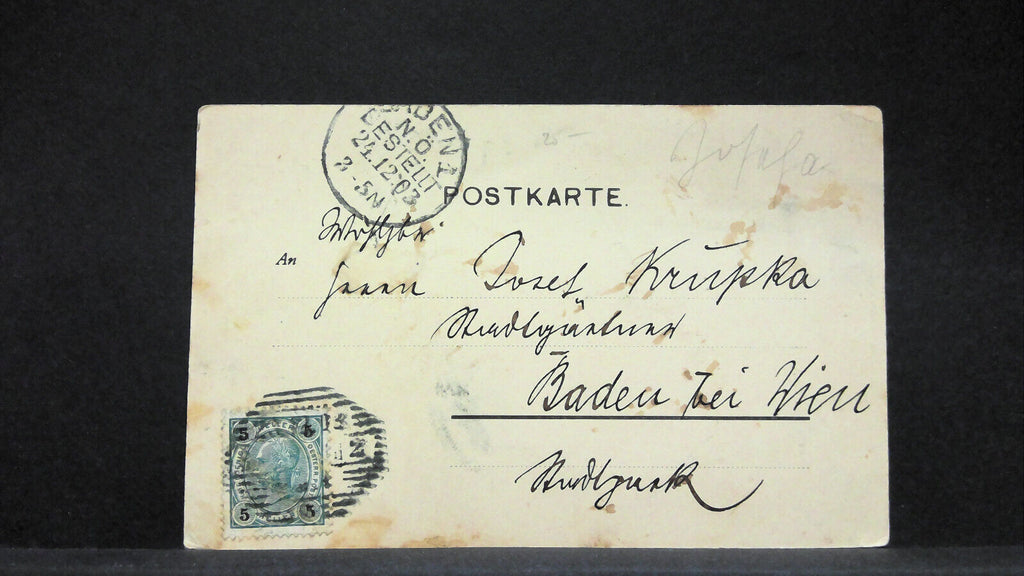 BADEN 1
N.Ö.
BESTELLT
24.12.03
3-5N
25-
Josefa
POSTKARTE.
Wohlgeb.
An
Herrn Josef Krupka
Stadtgärtner
Baden bei Wien
Stadtpark
5 5
5 5